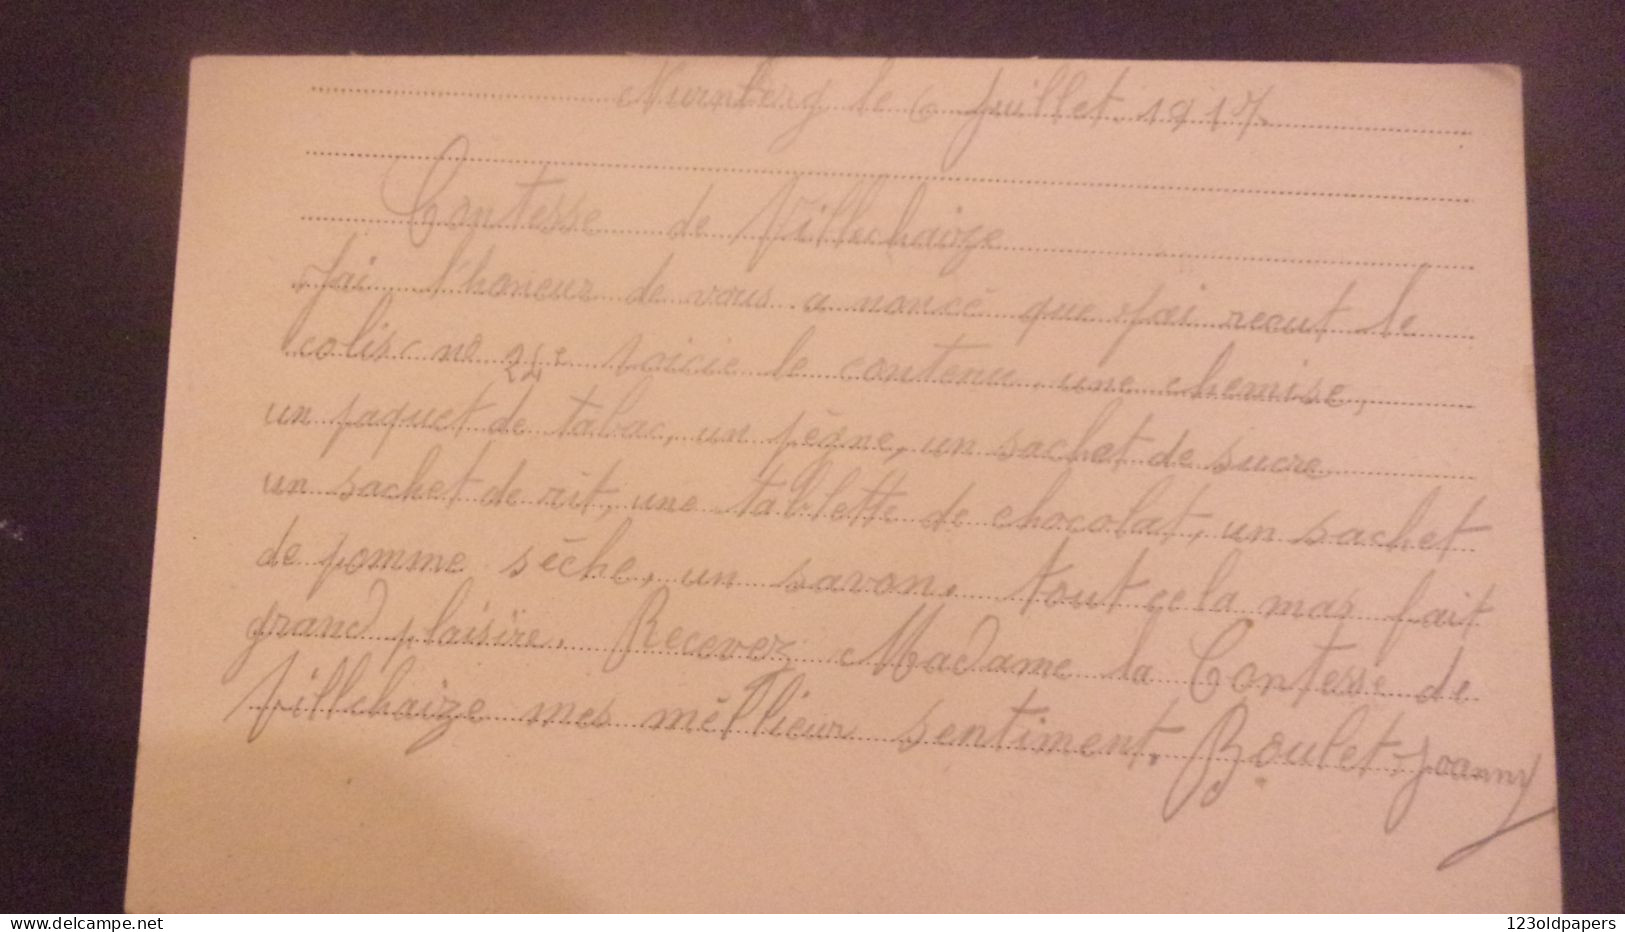 Nurnberg le 6 Juillet. 1917.
Contesse de Villechaize
J'ai l'honeur de vous a noncé que J'ai recut le
colis nº 24e voicie le contenu. une chemise,
un paquet de tabac, un pègne, un sachet de sucre
un sachet de rit, une tablette de chocolat, un sachet
de pomme sèche, un savon. tout cela mas fait
grand plaisire. Recevez Madame la Contesse de
Villchaize mes mèllieur sentiment. Boulet Joanny
www.delcampe.net
123oldpapers